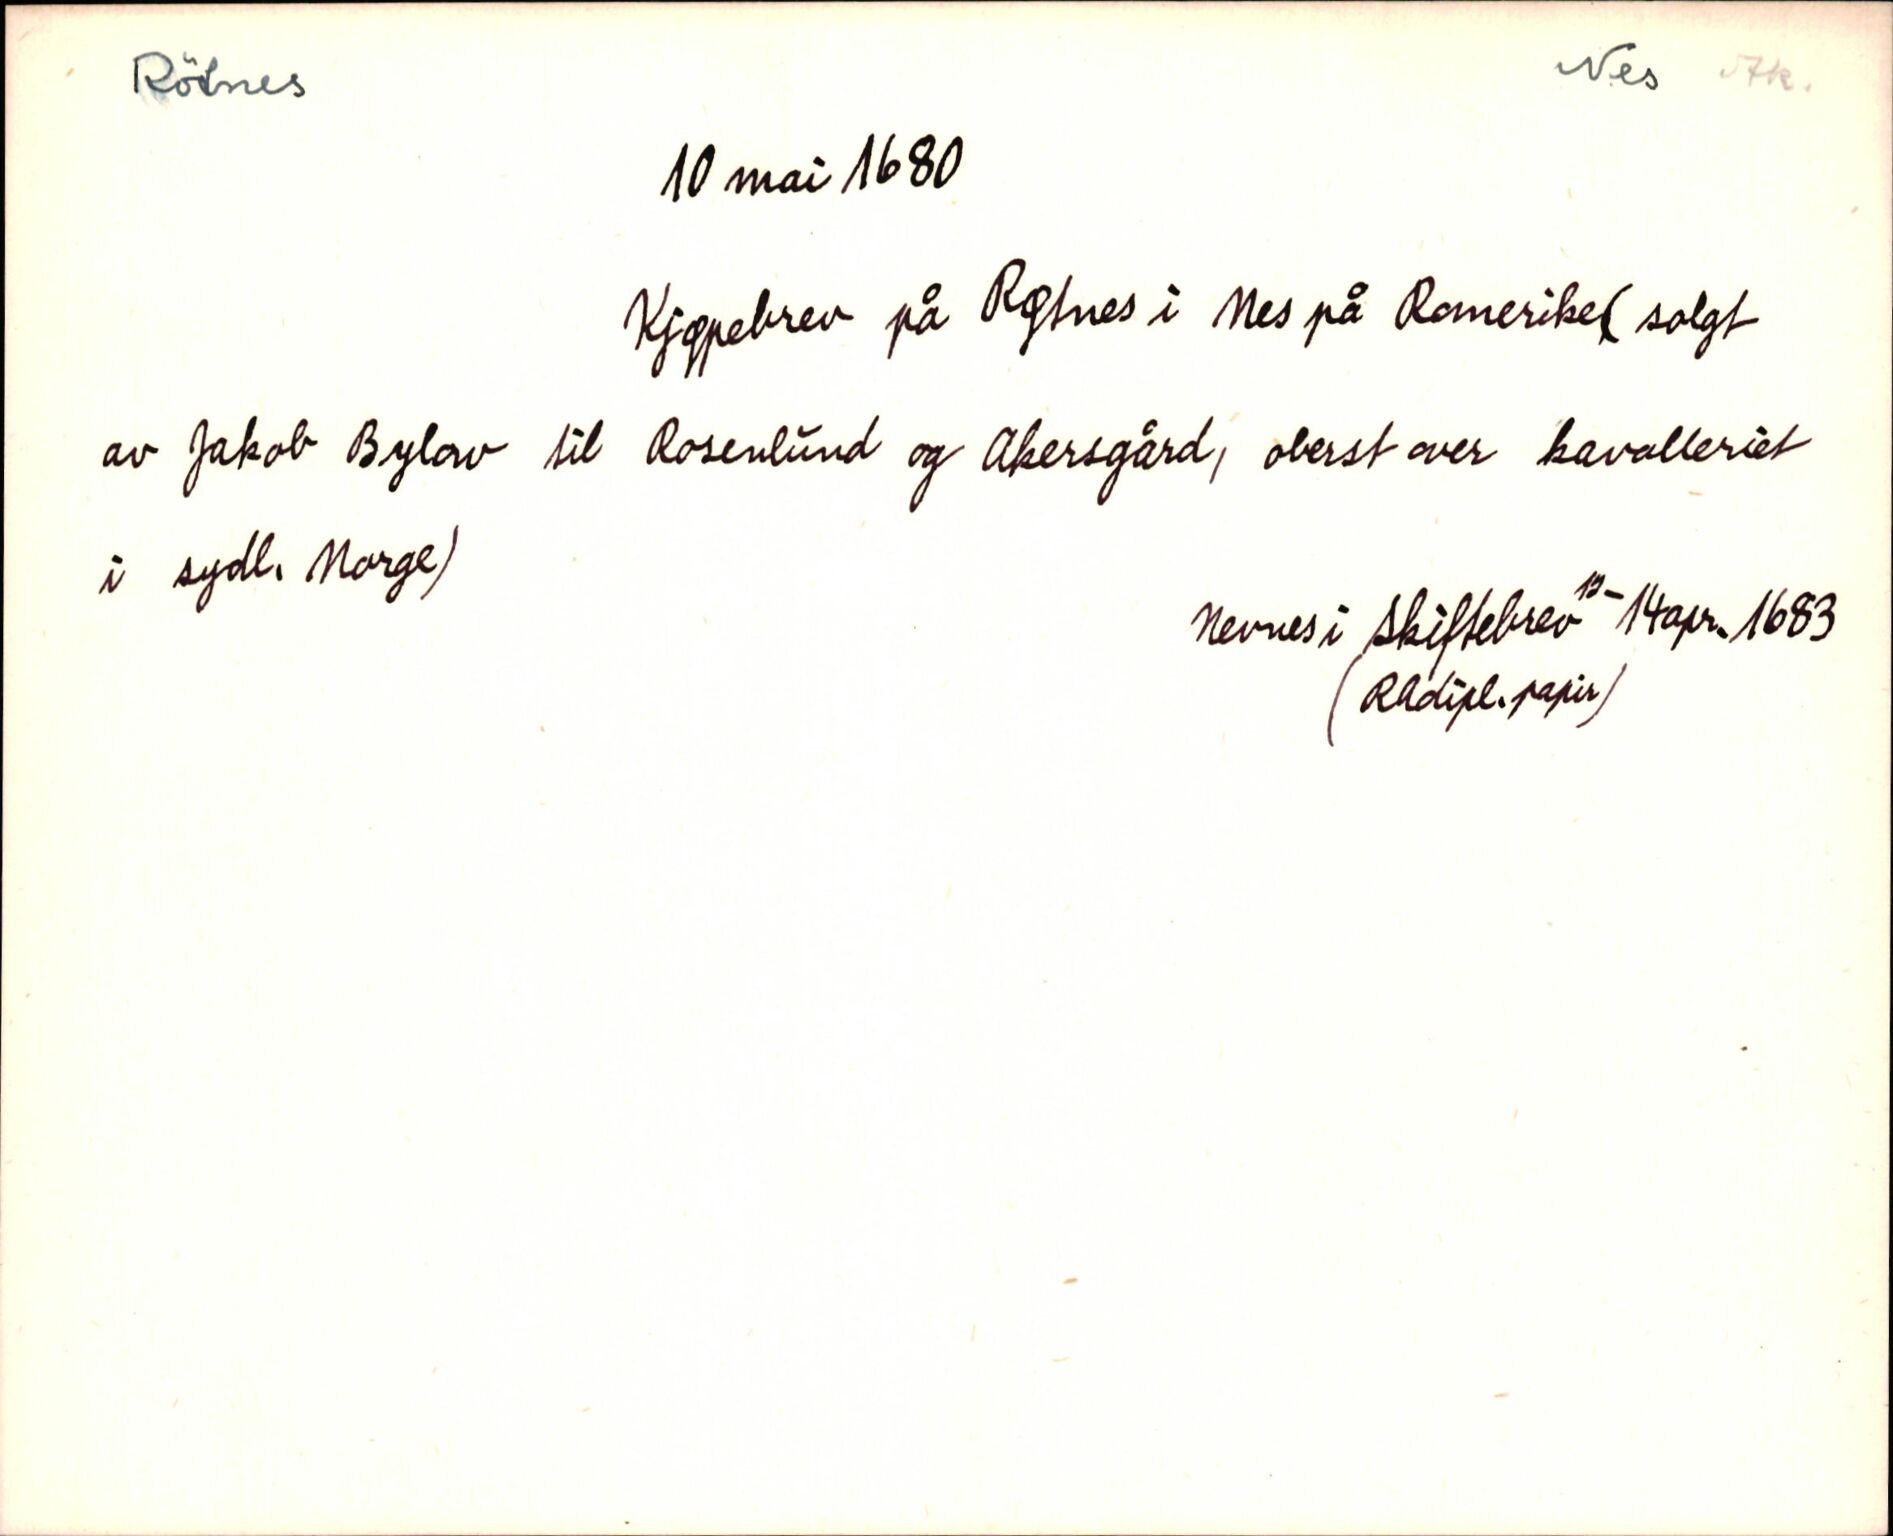 Rötnes Nes Ak.
10 mai 1680
Kjøpebrev på Røtnes i Nes på Romerike( solgt
av Jakob Bylow til Rosenlŭnd og Akersgård, oberst over kavalleriet
i sydl. Norge)
Nevnes i skiftebrev 14 apr. 1683
(RAdipl. papir)